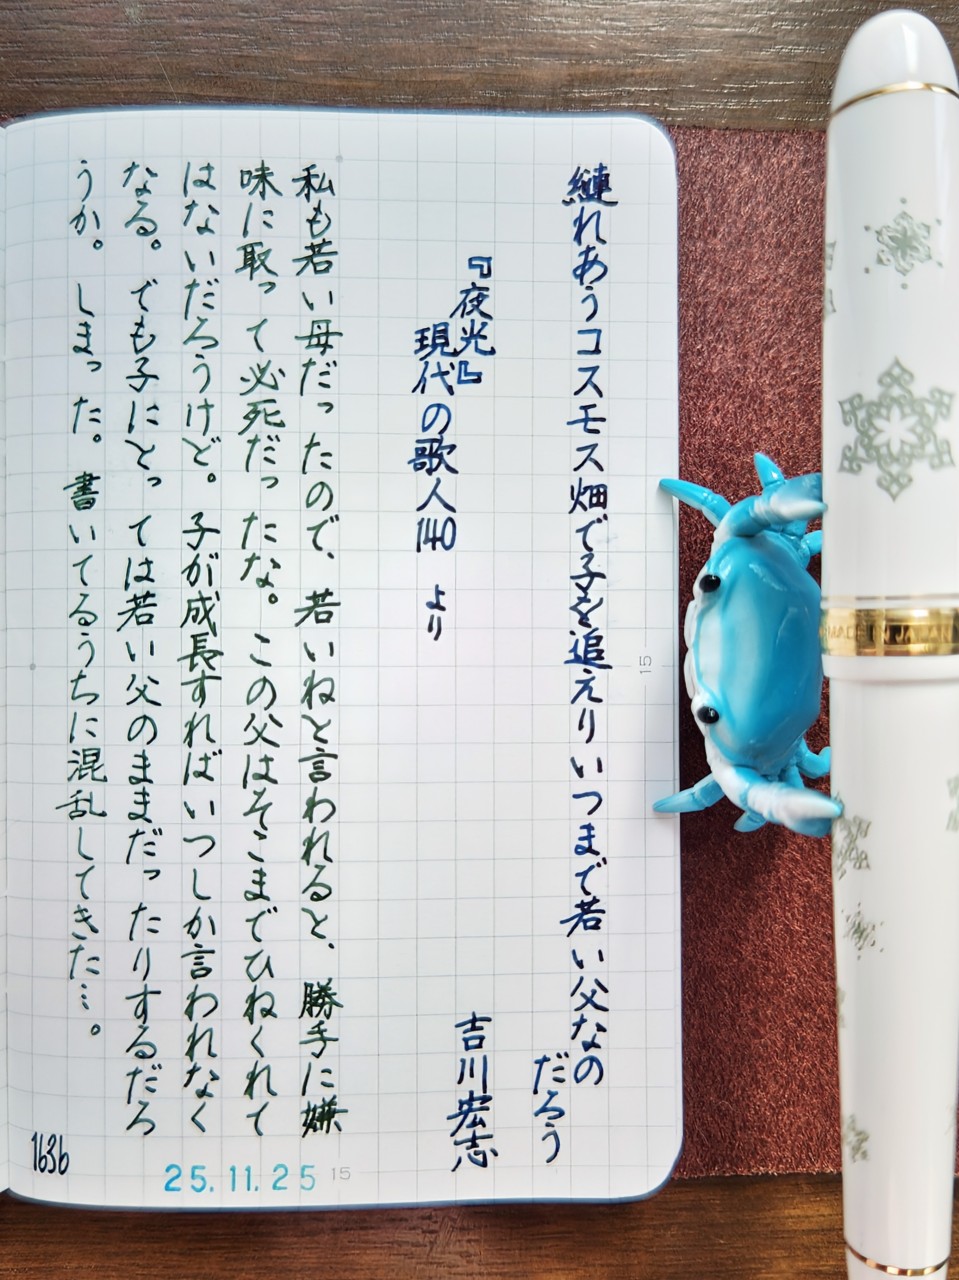 縺れあうコスモス畑で子を追えりいつまで若い父なの
だろう
『夜光』
吉川宏志
現代の歌人140 より
私も若い母だったので、若いねと言われると、勝手に嫌
味に取って必死だったな。この父はそこまでひねくれて
はないだろうけど。子が成長すればいつしか言われなく
なる。でも子にとっては若い父のままだったりするだろ
うか。しまった。書いてるうちに混乱してきた…。
1636
25.11.25
15
15
MADE IN JAPAN